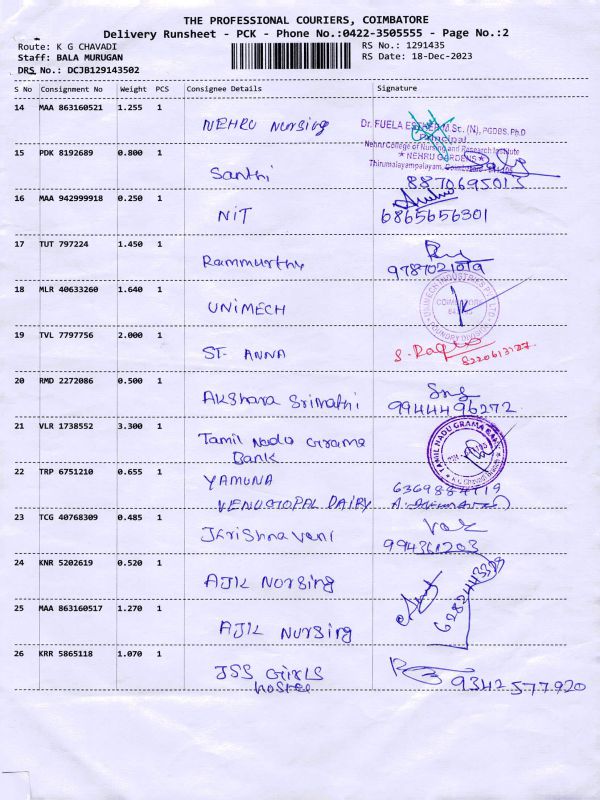 THE PROFESSIONAL COURIERS, COIMBATORE
Delivery Runsheet - PCK - Phone No.:0422-3505555 - Page No.:2
Route: K G CHAVADI
RS No.: 1291435
Staff: BALA MURUGAN
RS Date: 18-Dec-2023
DRS No.: DCJB129143502
S No Consignment No Weight PCS Consignee Details Signature
14 MAA 863160521 1.255 1 NEHRU Nursing
Principal
Nehru College of Nursing and Research Institute
* NEHRU GARDENS *
15 PDK 8192689 0.800 1 Santhi
8870695013
16 MAA 942999918 0.250 1 NIT 6865656301
17 TUT 797224 1.450 1 Rammurthy 9787021019
18 MLR 40633260 1.640 1 UNIMECH
19 TVL 7797756 2.000 1 ST. ANNA
20 RMD 2272086 0.500 1 Akshara Srimathi 9944496272
21 VLR 1738552 3.300 1 Tamil Nadu Grama
Bank
TAMIL NADU GRAMA BANK
22 TRP 6751210 0.655 1 YAMUNA
VENUGOPAL DAIRY
23 TCG 40768309 0.485 1 Jkrishnaveni 994361203
24 KNR 5202619 0.520 1 AJIL Nursing
6282443323
25 MAA 863160517 1.270 1 AJIL Nursing
26 KRR 5865118 1.070 1 JSS GIRLS
hostel
9342577920